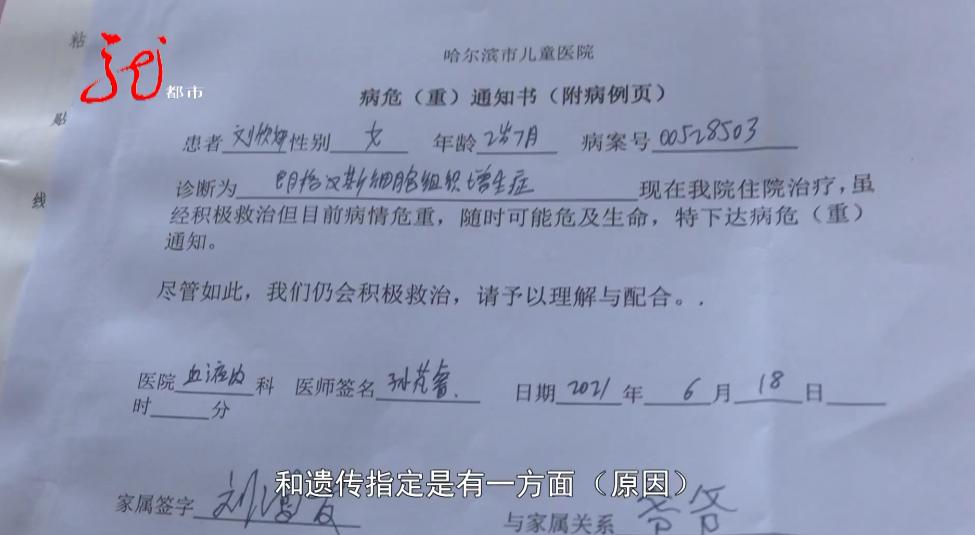 粘
贴
线
龙
都市
哈尔滨市儿童医院
病危（重）通知书（附病例页）
患者 刘欣 性别 女 年龄 2岁7月 病案号 00528503
诊断为 朗格汉斯细胞组织增生症 现在我院住院治疗，虽
经积极救治但目前病情危重，随时可能危及生命，特下达病危（重）
通知。
尽管如此，我们仍会积极救治，请予以理解与配合。.
医院 血液内 科 医师签名 孙 日期 2021 年 6 月 18 日
时 分
和遗传指定是有一方面（原因）
家属签字 刘
与家属关系 爷爷